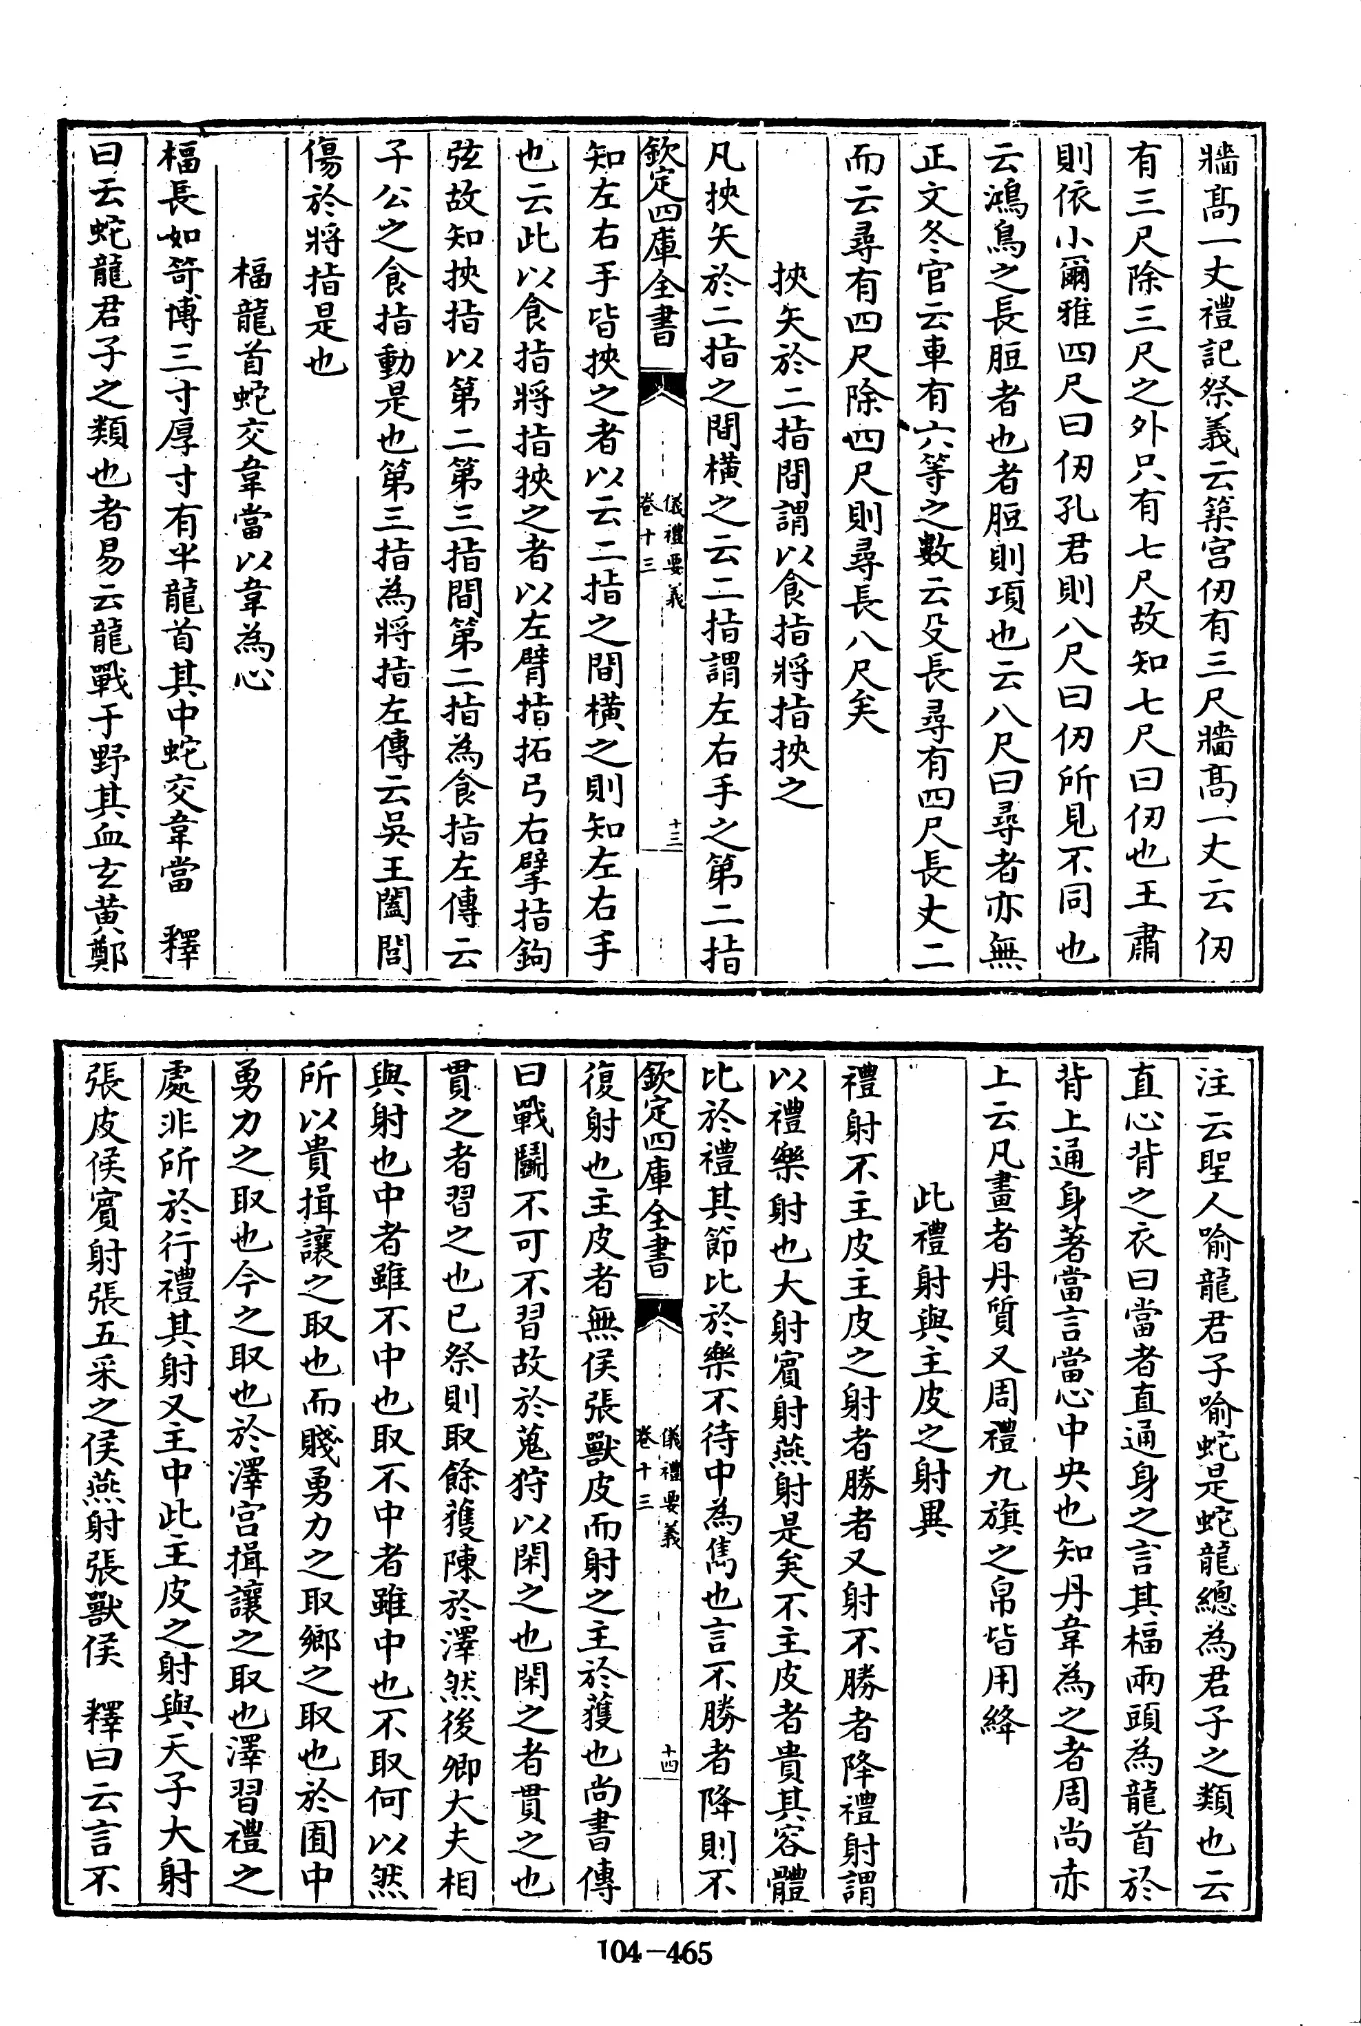 牆高一丈禮記祭義云築宮仞有三尺牆高一丈云仞
有三尺除三尺之外只有七尺故知七尺曰仞也王肅
則依小爾雅四尺曰仞孔君則八尺曰仞所見不同也
云鴻鳥之長脰者也者脰則項也云八尺曰尋者亦無
正文冬官云車有六等之數云殳長尋有四尺長丈二
而云尋有四尺除四尺則尋長八尺矣
挾矢於二指間謂以食指將指挾之
凡挾矢於二指之間橫之云二指謂左右手之第二指
欽定四庫全書
儀禮要義
卷十三
十三
知左右手皆挾之者以云二指之間橫之則知左右手
也云此以食指將指挾之者以左臂指拓弓右擘指鉤
弦故知挾指以第二第三指間第二指為食指左傳云
子公之食指動是也第三指為將指左傳云吳王闔閭
傷於將指是也
楅龍首蛇交韋當以韋為心
楅長如笴博三寸厚寸有半龍首其中蛇交韋當 釋
曰云蛇龍君子之類也者易云龍戰于野其血玄黃鄭
注云聖人喻龍君子喻蛇是蛇龍總為君子之類也云
直心背之衣曰當者直通身之言其楅兩頭為龍首於
背上通身著當言當心中央也知丹韋為之者周尚赤
上云凡畫者丹質又周禮九旗之帛皆用絳
此禮射與主皮之射異
禮射不主皮主皮之射者勝者又射不勝者降禮射謂
以禮樂射也大射賓射燕射是矣不主皮者貴其容體
比於禮其節比於樂不待中為雋也言不勝者降則不
欽定四庫全書
儀禮要義
卷十三
十四
復射也主皮者無侯張獸皮而射之主於獲也尚書傳
曰戰鬬不可不習故於蒐狩以閑之也閑之者貫之也
貫之者習之也已祭則取餘獲陳於澤然後卿大夫相
與射也中者雖不中也取不中者雖中也不取何以然
所以貴揖讓之取也而賤勇力之取鄉之取也於囿中
勇力之取也今之取也於澤宮揖讓之取也澤習禮之
處非所於行禮其射又主中此主皮之射與天子大射
張皮侯賓射張五采之侯燕射張獸侯 釋曰云言不
104-465